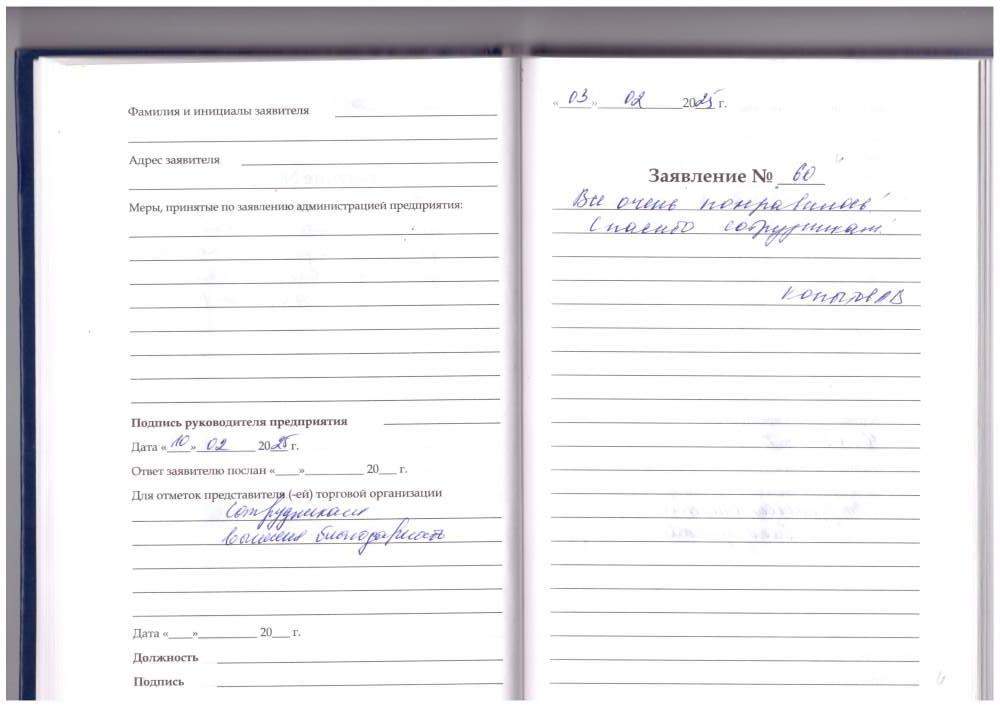 Фамилия и инициалы заявителя
Адрес заявителя
Меры, принятые по заявлению администрацией предприятия:
Подпись руководителя предприятия
Дата «10» 02 2025 г.
Ответ заявителю послан «____»__________ 20___ г.
Для отметок представителя (-ей) торговой организации
Сотрудникам
вынесена благодарность
Дата «____»__________ 20___ г.
Должность
Подпись
«03» 02 2025 г.
Заявление № 60
Все очень понравилось!
Спасибо сотрудникам!